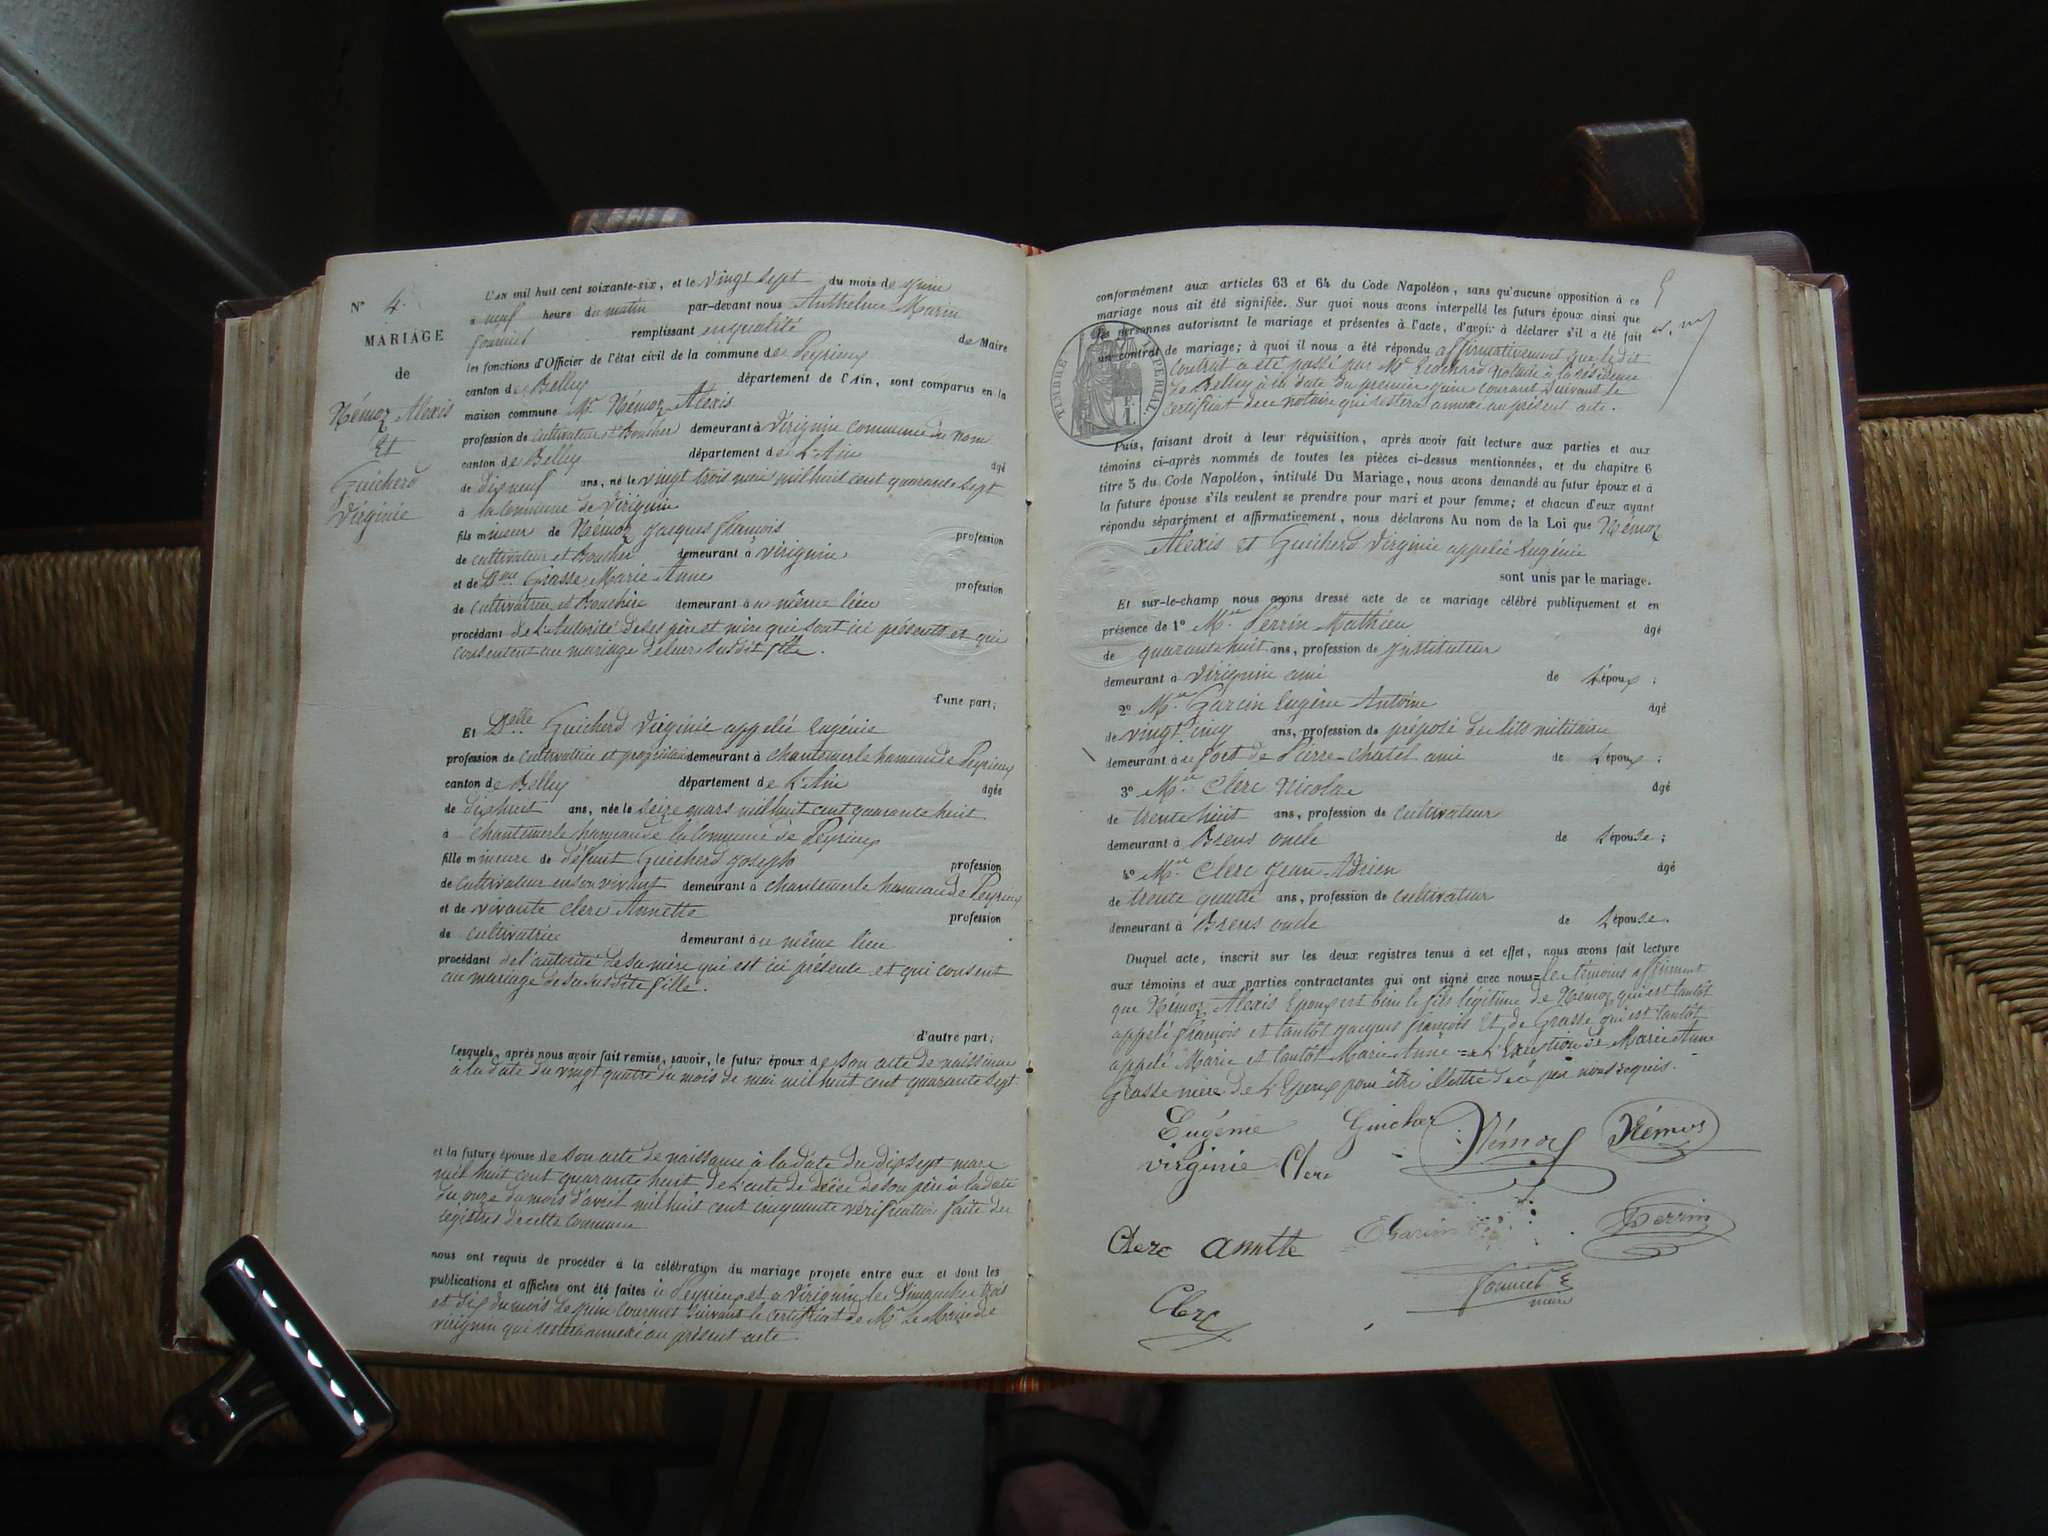 N° 4.
MARIAGE
de
Némoz Alexis
Et
Guicherd
Virginie
L'AN mil huit cent soixante-six, et le vingt sept du mois de juin
à neuf heure du matin par-devant nous Anthelme Marin
Fournet remplissant en qualité de Maire
les fonctions d'Officier de l'état civil de la commune de Peyrieux
canton de Belley département de l'Ain, sont comparus en la
maison commune Mr. Némoz Alexis
profession de cultivateur et Boucher demeurant à Virignin commune du nom
canton de Belley département de L'Ain âgé
de dix neuf ans, né le vingt trois mai mil huit cent quarante sept
à la Commune de Virignin
fils mineur de Némoz Jacques François profession
de cultivateur et Boucher demeurant à Virignin
et de Dme Grasse Marie Anne profession
de cultivatrice et Bouchère demeurant au même lieu
procédant de L'Autorité de ses père et mère qui sont ici présents et qui
consentent au mariage de leur susdit fils.
d'une part;
Et Delle Guicherd Virginie appelée Eugénie
profession de cultivatrice et propriétaire demeurant à chantemerle hameau de Peyrieux
canton de Belley département de L'Ain âgée
de dix huit ans, née le seize mars mil huit cent quarante huit
à chantemerle hameau de la Commune de Peyrieux
fille mineure de défunt Guicherd Joseph profession
de cultivateur en son vivant demeurant à chantemerle hameau de Peyrieux
et de vivante Clerc Annette profession
de cultivatrice demeurant au même lieu
procédant de l'autorité de sa mère qui est ici présente et qui consent
au mariage de sa susdite fille.
d'autre part;
Lesquels, après nous avoir fait remise, savoir, le futur époux de son acte de naissance
à la date du vingt quatre du mois de mai mil huit cent quarante sept
et la future épouse de son acte de naissance à la date du dix sept mars
mil huit cent quarante huit de l'acte de décès de son père à la date
du onze du mois d'avril mil huit cent cinquante vérification faite des
registres de cette commune
nous ont requis de procéder à la célébration du mariage projeté entre eux et dont les
publications et affiches ont été faites à Peyrieux et à Virignin les Dimanches trois
et dix du mois de juin courant suivant le certificat de Mr Le Maire de
Virignin qui restera annexé au présent acte.
5
conformément aux articles 63 et 64 du Code Napoléon, sans qu'aucune opposition à ce
mariage nous ait été signifiée. Sur quoi nous avons interpellé les futurs époux ainsi que
les personnes autorisant le mariage et présentes à l'acte, d'avoir à déclarer s'il a été fait
un contrat de mariage; à quoi il nous a été répondu affirmativement que ledit
Contrat a été passé par Me Notaire à la résidence
de Belley à la date du premier juin courant suivant le
certificat de ce notaire qui restera annexé au présent acte.
TIMBRE IMPERIAL
Puis, faisant droit à leur réquisition, après avoir fait lecture aux parties et aux
témoins ci-après nommés de toutes les pièces ci-dessus mentionnées, et du chapitre 6
titre 5 du Code Napoléon, intitulé Du Mariage, nous avons demandé au futur époux et à
la future épouse s'ils veulent se prendre pour mari et pour femme; et chacun d'eux ayant
répondu séparément et affirmativement, nous déclarons Au nom de la Loi que Némoz
Alexis et Guicherd Virginie appelée Eugénie
sont unis par le mariage.
Et sur-le-champ nous avons dressé acte de ce mariage célébré publiquement et en
présence de 1° Mr Perrin Mathieu âgé
de quarante huit ans, profession de instituteur
demeurant à Virignin ami de L'époux;
2° Mr Garcin Eugène Antoine âgé
de vingt cinq ans, profession de préposé des lits militaires
demeurant au fort de Pierre-Chatel ami de L'époux;
3° Mr Clerc Nicolas âgé
de trente huit ans, profession de cultivateur
demeurant à Brens oncle de L'épouse;
4° Mr Clerc Jean Adrien âgé
de trente quatre ans, profession de cultivateur
demeurant à Brens oncle de L'épouse.
Duquel acte, inscrit sur les deux registres tenus à cet effet, nous avons fait lecture
aux témoins et aux parties contractantes qui ont signé avec nous = les témoins affirment
que Némoz Alexis Epoux est bien le fils légitime de Némoz qui est tantôt
appelé François et tantôt Jacques François Et de Grasse qui est tantôt
appelé Marie et tantôt Marie Anne = à L'Exception de Marie Anne
Grasse mère de L'Epoux pour être illettrée de ce par nous requis.
Eugénie Guicher Némoz Némoz
virginie Clerc
Clerc Annette EGarcin Perrin
Clerc Fournet
maire